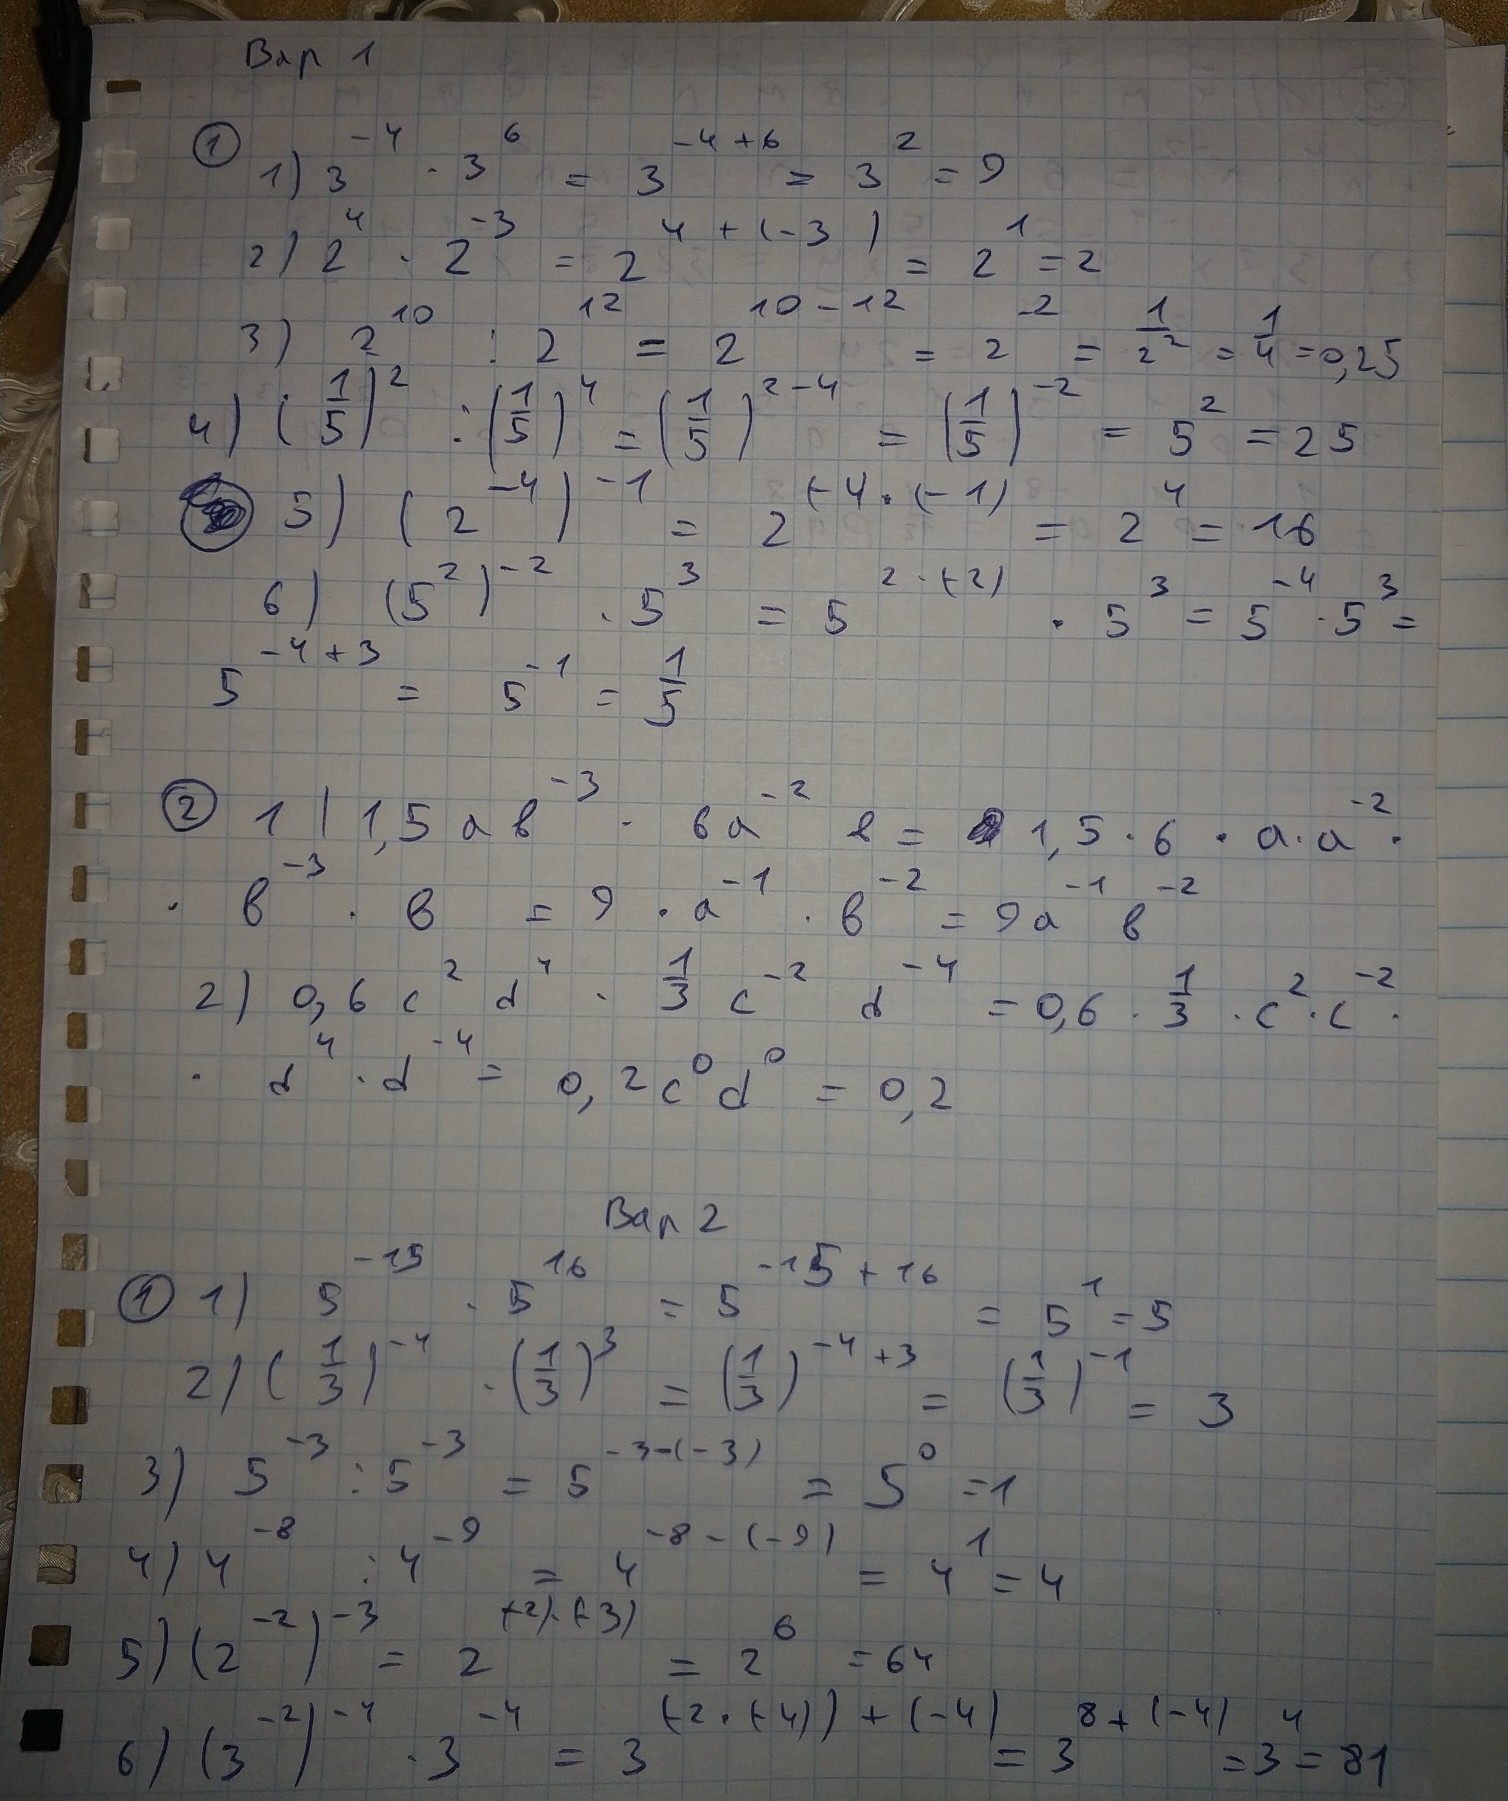 Вар 1
① 1) 3⁻⁴ · 3⁶ = 3⁻⁴⁺⁶ = 3² = 9
2) 2⁴ · 2⁻³ = 2⁴⁺⁽⁻³⁾ = 2¹ = 2
3) 2¹⁰ : 2¹² = 2¹⁰⁻¹² = 2⁻² = 1/2² = 1/4 = 0,25
4) (1/5)² : (1/5)⁴ = (1/5)²⁻⁴ = (1/5)⁻² = 5² = 25
5) (2⁻⁴)⁻¹ = 2^(-4·(-1) = 2⁴ = 16
6) (5²)⁻² · 5³ = 5^2·(-2) · 5³ = 5⁻⁴ · 5³ =
5⁻⁴⁺³ = 5⁻¹ = 1/5
② 1) 1,5 а в⁻³ · 6а⁻² в = 1,5 · 6 · а · а⁻² ·
· в⁻³ · в = 9 · а⁻¹ · в⁻² = 9а⁻¹ в⁻²
2) 0,6 c² d⁴ · 1/3 c⁻² d⁻⁴ = 0,6 · 1/3 · c² · c⁻² ·
· d⁴ · d⁻⁴ = 0,2 c⁰ d⁰ = 0,2
Вар 2
① 1) 5⁻¹⁵ · 5¹⁶ = 5⁻¹⁵⁺¹⁶ = 5¹ = 5
2) (1/3)⁻⁴ · (1/3)³ = (1/3)⁻⁴⁺³ = (1/3)⁻¹ = 3
3) 5⁻³ : 5⁻³ = 5⁻³⁻⁽⁻³⁾ = 5⁰ = 1
4) 4⁻⁸ : 4⁻⁹ = 4⁻⁸⁻⁽⁻⁹⁾ = 4¹ = 4
5) (2⁻²)⁻³ = 2^(-2)·(-3) = 2⁶ = 64
6) (3⁻²)⁻⁴ · 3⁻⁴ = 3^(-2·(-4))+(-4) = 3⁸⁺⁽⁻⁴⁾ = 3⁴ = 81